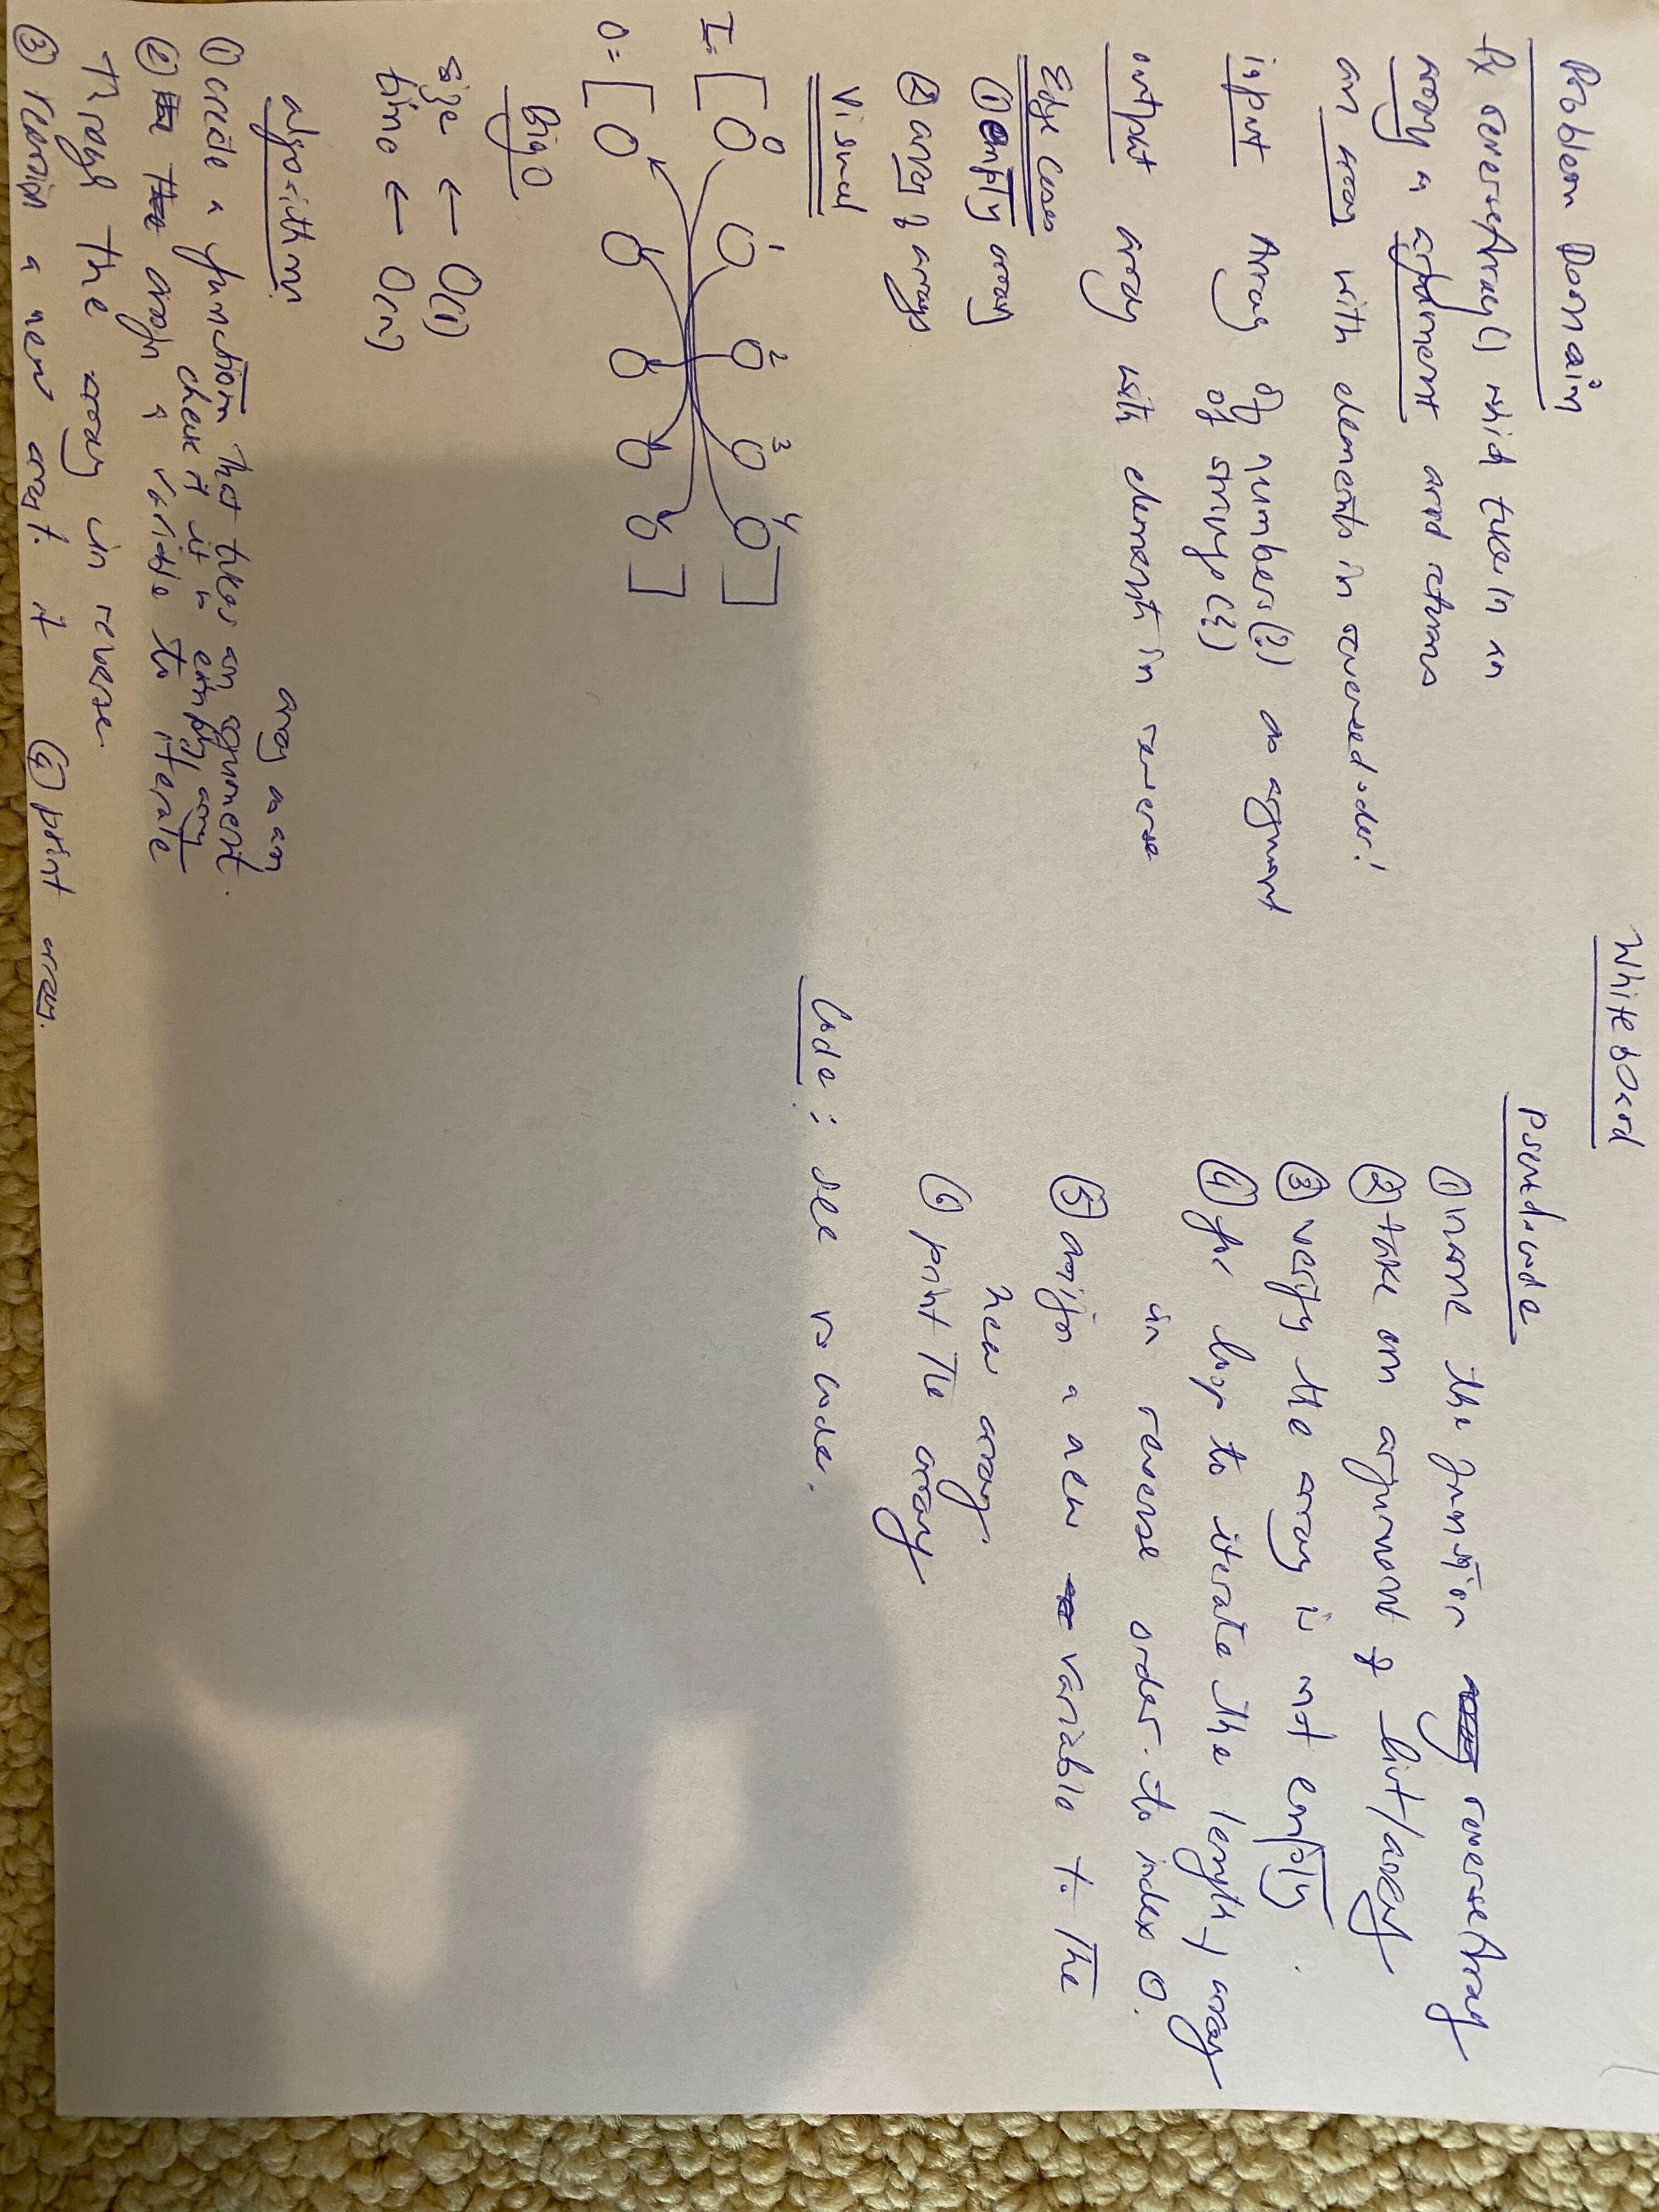 White board
Problem Domain
fx reverseArray() which take in an
array a argument and returns
an array with elements in reversed order!
input Array of numbers(?) as argument
of strings(?)
output array with elements in reverse
Edge Cases
① empty array
② array of arrays
Visual
0 1 2 3 4
I = [ O O O O O ]
O = [ O O O O O ]
Big O
size ← O(1)
time ← O(n)
algorithm
array as an
① create a function that takes an argument.
check if it is empty array
② assign a variable to iterate
through the array in reverse.
③ reassign a new array. it ④ print array.
Pseudocode
① name the function reverseArray
② take an argument of list/array
③ verify the array is not empty.
④ for loop to iterate the length of array
in reverse order to index 0.
⑤ assign a new variable to the
new array.
⑥ print the array
Code: see vs code.